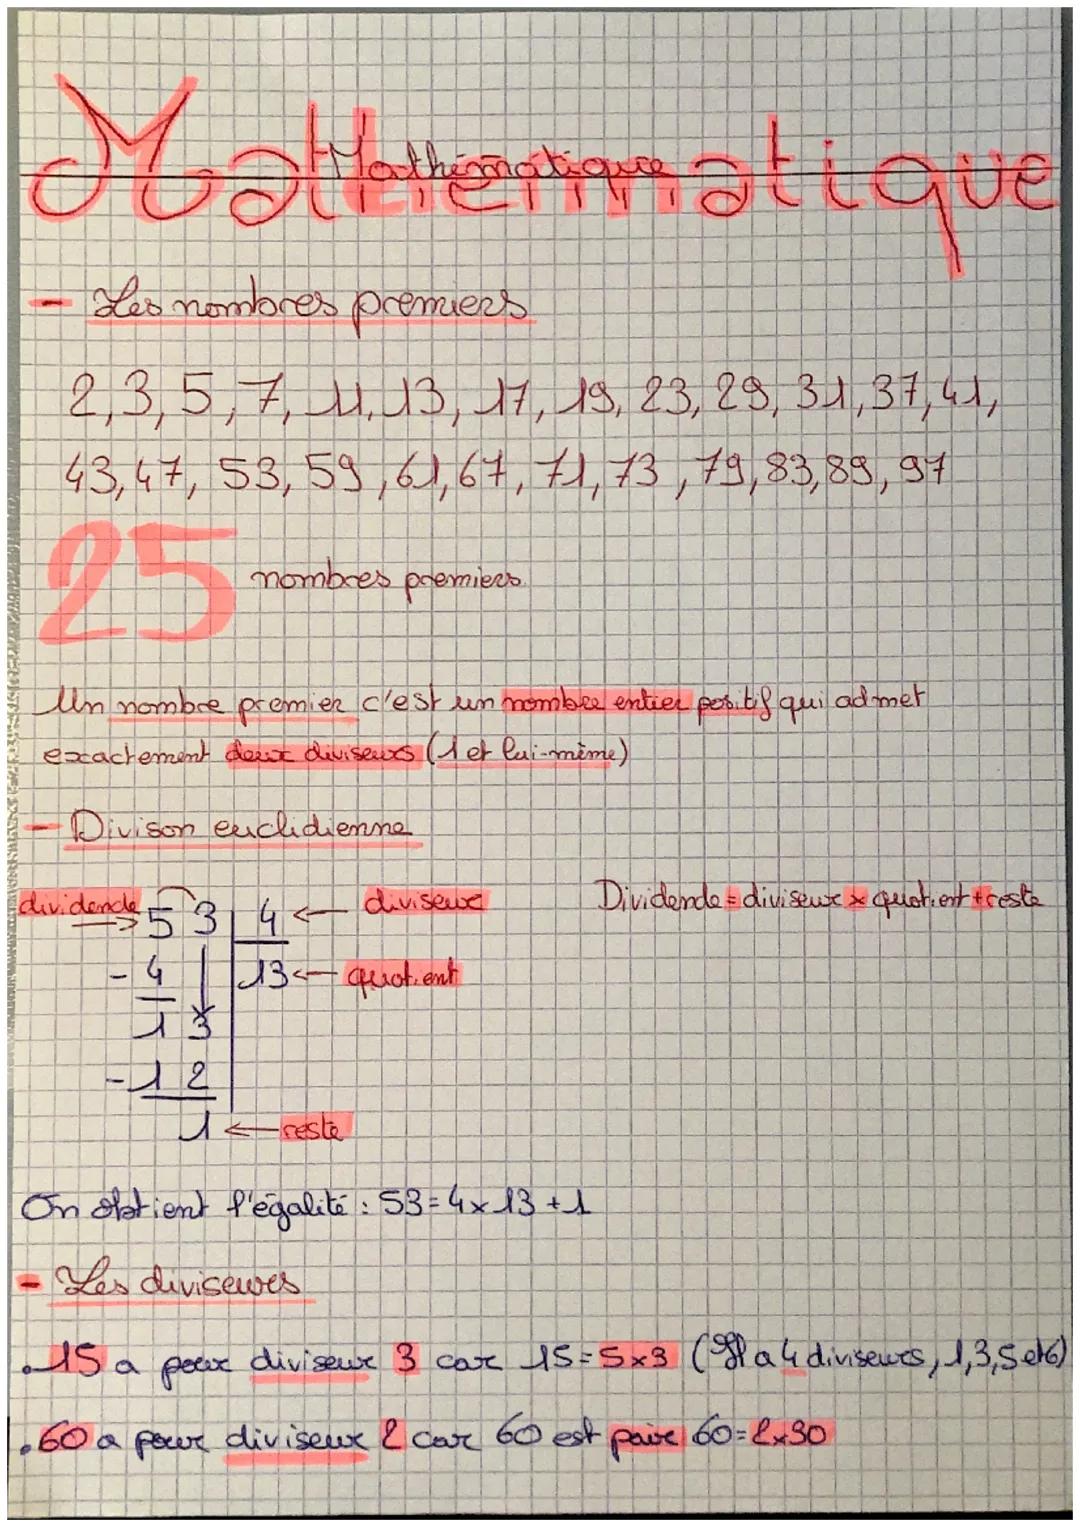 Mathématique
Mathématique
- Les nombres premiers
2, 3, 5, 7, 11, 13, 17, 19, 23, 29, 31, 37, 41,
43, 47, 53, 59, 61, 67, 71, 73, 79, 83, 89, 97
25 nombres premiers.
Un nombre premier c'est un nombre entier positif qui admet
exactement deux diviseurs (1 et lui-même)
- Divison euclidienne
dividende 53 4 ← diviseur Dividende = diviseur x quotient + reste
- 4 13 ← quotient
13
- 12
1 ← reste
On obtient l'égalité : 53 = 4 x 13 + 1
- Les diviseurs
. 15 a pour diviseur 3 car 15 = 5 x 3 (Il a 4 diviseurs, 1, 3, 5 et 6)
. 60 a pour diviseur 2 car 60 est paire 60 = 2 x 30